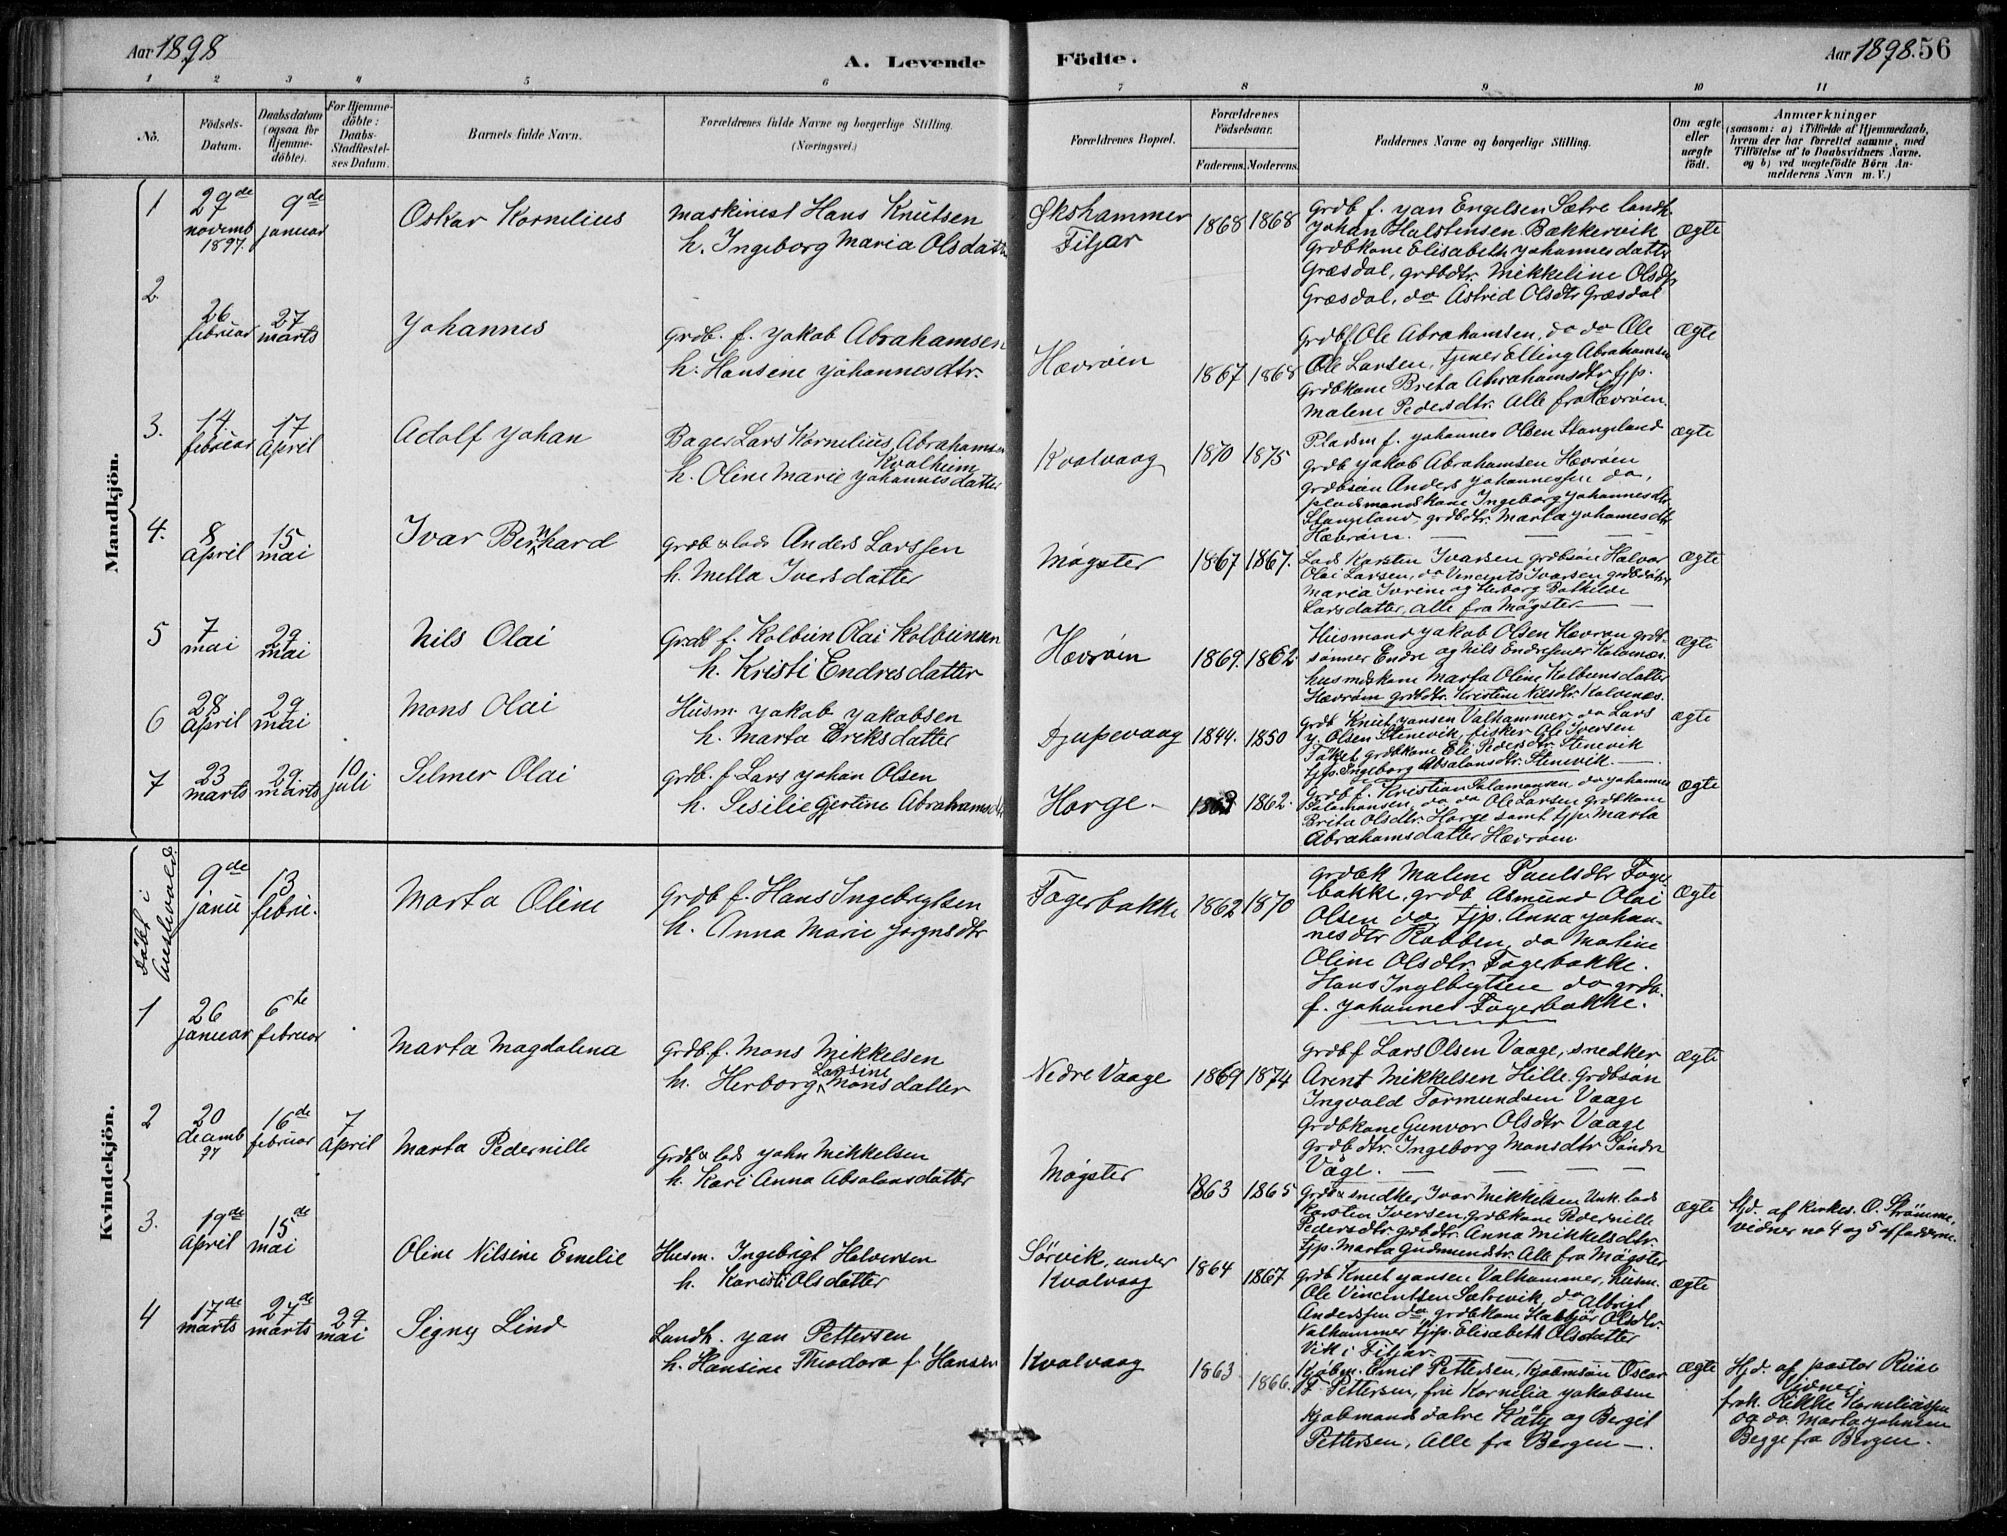 Aar 1898
A. Levende
Födte.
Aar 1898.
56
1 2 3 4 5 6 7 8 9 10 11
No.
Födsels-Datum.
Daabsdatum (ogsaa for Hjemme-döbte).
For Hjemme-döbte: Daabs-Stadfæstel-ses Datum.
Barnets fulde Navn.
Forældrenes fulde Navne og borgerlige Stilling.
(Næringsvei.)
Forældrenes Bopæl.
Forældrenes Födselsaar.
Faderens. Moderens.
Faddernes Navne og borgerlige Stilling.
Om ægte eller uægte födt.
Anmærkninger
(saasom: a) i Tilfælde af Hjemmedaab,
hvem der har forrettet samme, med
Tilföielse af to Daabsvidners Navne,
og b) ved uægtefödte Börn An-
melderens Navn m. V.)
Mandkjön.
1 29de novemb 1897. 9de januar
Oskar Kornelius
maskinest Hans Knutsen
h. Ingeborg Maria Olsdatter
Økshammer
Fitjar
1868 1868
grdb f. Jan Engelsen Sætre landh.
Johan Halstinsen Bækkervik
grdbkone Elisabeth Johannesdatter
Græsdal, grdbdtr. Mikkeline Olsdtr
Græsdal, do Astrid Olsdtr Græsdal
ægte
2. 26 februar 27 marts
Johannes
grdb. f. Jakob Abrahamsen
h. Hansine Johannesdtr.
Hævrøen
1867 1868
grdbf Ole Abrahamsen, do do Ole
Ole Larsen, tjener Elling Abrahamsen
grdbkone Brita Abrahamsdtr tjp.
Malene Pedersdtr. Alle fra Hævrøen.
ægte
3. 14 februar 17 April
Adolf Johan
Bager Lars Kornelius Abrahamsen
Kvalheim
h. Oline Marie Johannesdatter
Kvalvaag
1870 1875
Pladsm f. Johannes Olsen Stangeland
grdb Jakob Abrahamsen Hævrøen
grdbsøn Anders Johannessen do,
pladsmandskone Ingeborg Johannesdtr
Stangeland, grdbdtr. Marta Johannesdtr
Hævrøen.
ægte
4. 8 April 15 mai
Ivar Bernhard
grdb & lods Anders Larssen
h. Mella Iversdatter
Møgster
1867 1867.
Lods Karsten Ivarsen grdbsøn Halvor
Olai Larsen, do Vincents Ivarsen grdbdøtre
Maria Ivrine og Herborg Bathilde
Larsdatter, alle fra Møgster
ægte
5 7 mai 29 mai
Nils Olai
Grdb f. Kolbein Olai Kolbeinsen
h. Kristi Endresdatter
Hævrøen
1869. 1862.
Husmand Jakob Olsen Hævrøen grdb-
sønner Endre og Nils Endresener Kalvenæs.
husmdskone Marta Oline Kolbeinsdatter
Hævrøen grdbdtr. Kristine Nilsdtr Kalvenæs.
ægte
6 28 April 29 mai
Mons Olai
Husm. Jakob Jakobsen
h. Marta Eriksdatter
Djupevaag
1844. 1850
grdb Knut Jansen Valhammer, do Lars
J. Olsen Stenevik, fisker Ole Iversen
Tøkel, grdbkone Eli Pedersdtr. Stenevik
tjp. Ingeborg Absalonsdtr. Stenevik.
ægte
7 23 marts 29. marts 10 juli
Selmer Olai
grdb. f Lars Johan Olsen
h. Sesilie Gjertine Abrahamsdtr
Horge.
1863 1862.
grdb f. Kristian Salamonsen, do Johannes
Salamonsen, do do Ole Larsen grdbkone
Brita Olsdtr. Horge samt tjp. Marta
Abrahamsdatter Hævrøen.
ægte
Kvindekjön.
døbt i Austevold.
9de janu 13 febru.
Marta Oline
grdb f. Hans Ingebrigtsen
h. Anna Marie Jørgnsdtr
Fagerbakke
1862 1870
grdbk Malene Paulsdtr Fager-
bakke, grdb Asmund Olai
Olsen do tjp. Anna Johan-
nesdtr Rabben, do Maline
Oline Olsdtr. Fagerbakke.
Hans Ingebrigtsen do grdb.
f. Johannes Fagerbakke.
ægte
1 26 januar 6te februar
Marta Magdalena
Grdb f. Mons Mikkelsen
Larsine
h. Herborg Monsdatter
Nedre Vaage
1869 1874
grdb f Lars Olsen Vaage, snedker
Arent Mikkelsen Hille, grdbsøn
Ingvald Tormundsen Vaage
grdbkone Gunvor Olsdtr Vaage
grdb dtr. Ingeborg Monsdtr Søndre
Våge.
ægte
2 20 decemb 97 16de februar 7 April
Marta Pedernille
grdb & lods John Mikkelsen
h. Kari Anna Absalonsdatter
Møgster
1863 1865
grdb & snedker Ivar Mikkelsen Unk. lods
Karsten Iversen, grdbkone Pedernille
Pedersdtr grdbdtr. Anna Mikkelsdtr
tjp. Marta Gudmundsdtr. Alle fra Møgster
ægte
Hjd. af kirkes. O. Strømme,
vidner no 4 og 5 af fadderne.
3. 19de April 15de mai
Oline Nilsine Emelie
Husm. Ingebrigt Halversen
h. Karista Olsdatter
Sørvik, under
Kvalvaag
1864 1867
grdb Knut Jansen Valhammer, husm.
Ole Vincentsen Salrevik, do Albrigt
Anderssen do, grdbkone Halbjør Olsdtr.
Valhammer tjp. Elisabeth Olsdatter
Vik i Fitjar.
ægte
4 17de marts 27de marts 29 mai
Signy Lind
Landh. Jan Pettersen
h. Hansine Theodora f. Hansen
Kvalvaag
1863 1866.
Kjøbm. Emil Pettersen, Kjøbmsøn Oscar
F Pettersen, fru Kornelia Jakobsen
Kjøbmandsdøtre Käty og Bergit
Pettersen, Alle fra Bergen.
ægte
Hjd. af pastor Riise
Vidner:
frøk. Rikke Korneliussen
og do. Marta Johnsen
Begge fra Bergen.